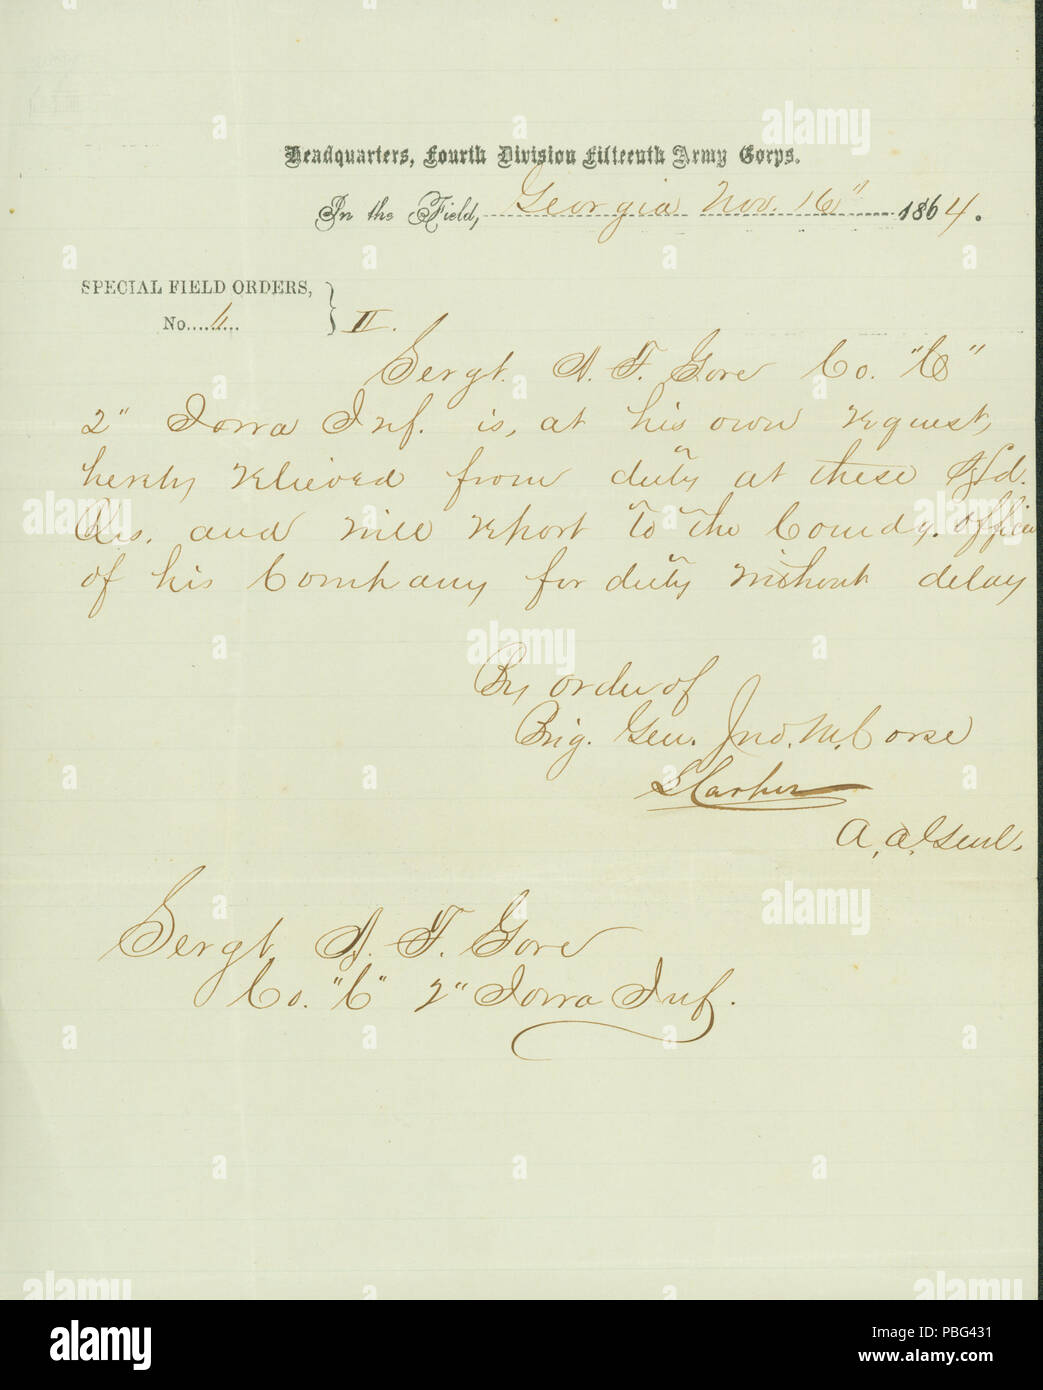 Headquarters, Fourth Division Fifteenth Army Corps.
In the Field, Georgia Nov. 16" 1864.
SPECIAL FIELD ORDERS,
No. 11 } II.
Sergt. A. F. Gore Co. "C"
2" Iowa Inf. is, at his own request,
hereby relieved from duty at these Hd.
Qrs. and will report to the Comdg. officer
of his Company for duty without delay
By order of
Brig. Gen. Jno. M. Corse
A. A. Genl.
Sergt. A. F. Gore
Co. "C" 2" Iowa Inf.
alamy
Image ID: PBG431
www.alamy.com